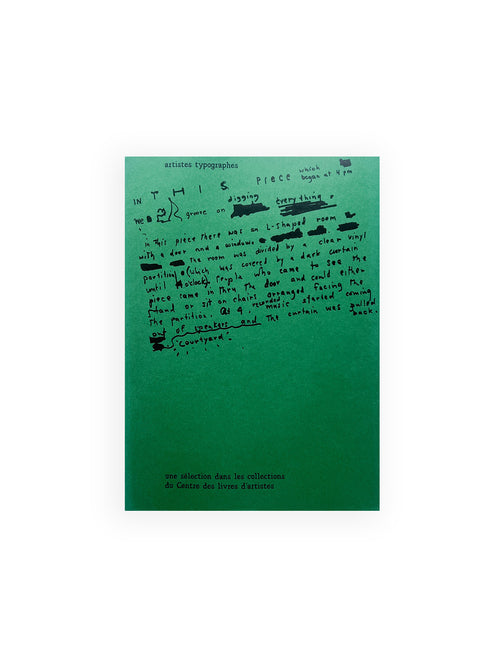 artistes typographes
IN THIS PIECE which began at 4 pm
we groove on digging everything.
in this piece there was an L-shaped room
with a door and a window. The room was divided by a clear vinyl
partition (which was covered by a dark curtain
until 4 o'clock). People who came to see the
piece came in thru the door and could either
stand or sit on chairs arranged facing the
the partition. At 4, recorded music started coming
out of speakers and the curtain was pulled back.
"courtyard"
une sélection dans les collections
du Centre des livres d'artistes